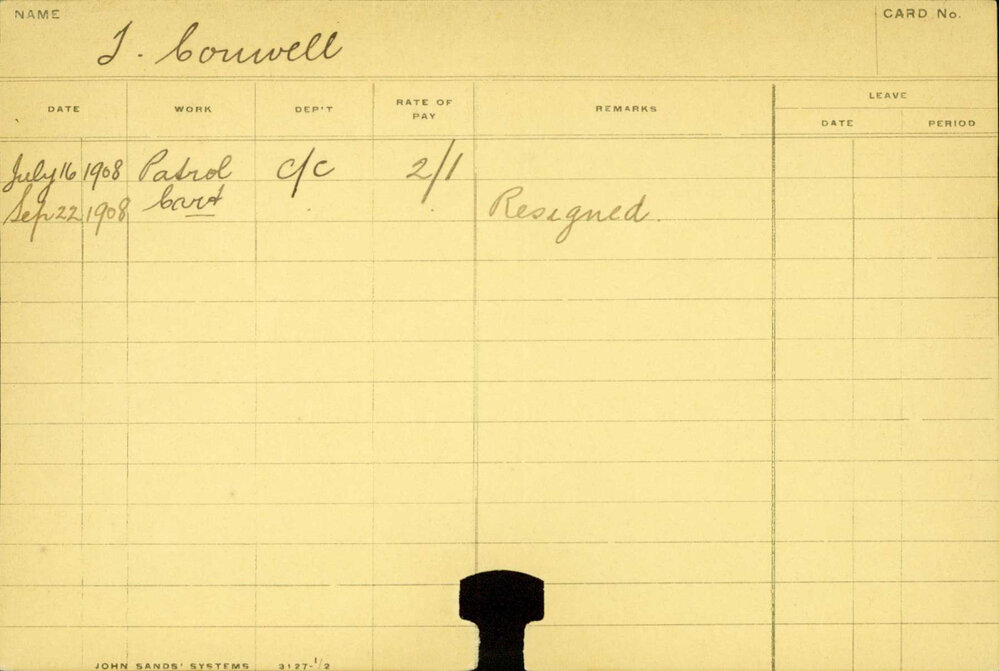 NAME
CARD No.
J. Conwell
DATE WORK DEP'T RATE OF PAY REMARKS LEAVE
DATE PERIOD
July 16 1908 Patrol c/c 2/1
Sep 22 1908 Cart Resigned.
JOHN SANDS' SYSTEMS 3127-1/2